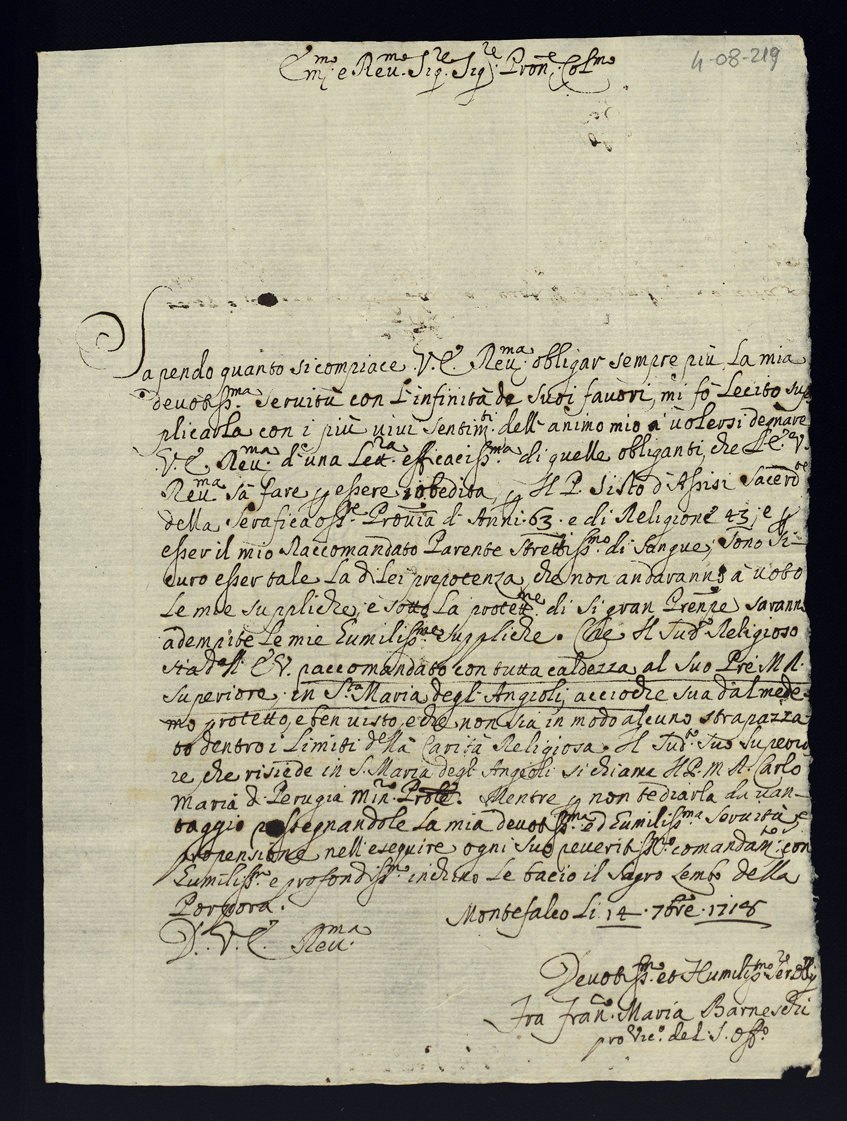 4-08-219
Em.mo e Reu.mo Sig.re Sig.re Pron.e Col.mo
Sapendo quanto si compiace V. E. Reu.ma obligar sempre più La mia
deuotiss.ma seruitù con L'infinità de Suoi fauori, mi fò Lecito sup
plicarla con i più uiui sentim.ti dell'animo mio à uolersi degnare
V. E. Reu.ma d'una Lett.ra efficaciss.ma di quelle obliganti, che
Reu.ma sà fare p essere obedita, p Il P. Sisto d'Assisi Sacerd.te
della Serafica Prouīa d'Anni 63. e di Religione 43, e p
esser il mio Raccomandato Parente Strettiss.mo di Sangue, Sono Si-
curo esser tale La di Lei prepotenza, che non andaranno à uoto
Le mie suppliche, e sotto La protett.ne di si gran Prēnpe saranno
adempite Le mie Eumiliss.me suppliche. Che Il Sud.to Religioso
sia raccomandato con tutta caldezza al Suo Pre M. R.
Superiore, in S.ta Maria degl'Angioli, accioche sia dal mede-
mo protetto, e ben uisto, e che non sia in modo alcuno strapazza
to dentro i Limiti della Carità Religiosa. Il Sud.to Suo Superio
re che risiede in S. Maria degl'Angeoli si chiama Il P. M. R. Carlo
Maria di Perugia Min.ro Prōle. Mentre p non tediarla da uan-
taggio rassegnandole La mia deuotiss.ma ed Eumiliss.ma seruitù, e
propensione nell'eseguire ogni Suo reueritiss.mo comandam.to con
Eumiliss.mo e profondiss.mo inchino Le bacio il Sagro Lembo della
Porpora.
Montefalco Li 14. 7bre. 1718
D. V. E. Reu.ma
Deuotiss.mo et Humiliss.mo
Fra Fran.co Maria Barneschi
pro Vic.o del S. Off.o